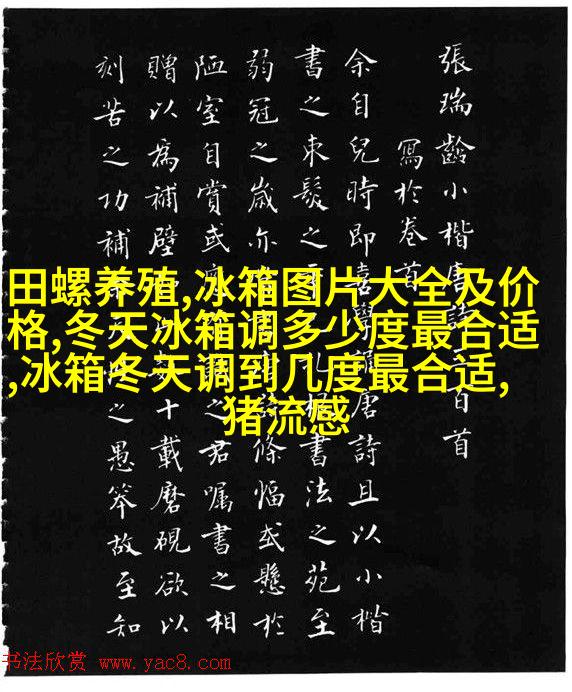 張瑞齡小楷唐詩三百首
寫於卷首
余自兒時即喜學誦唐詩且以小楷
書之束髮之書法之苑至
弱冠之歲亦條幅或懸於
陋室自賞或之君囑書之相
贈以爲補壁十載磨硯欲以
刻苦之功補之愚笨故至知
田螺养殖,冰箱图片大全及价
格,冬天冰箱调多少度最合适
,冰箱冬天调到几度最合适,
猪流感
书法欣赏 www.yac8.com